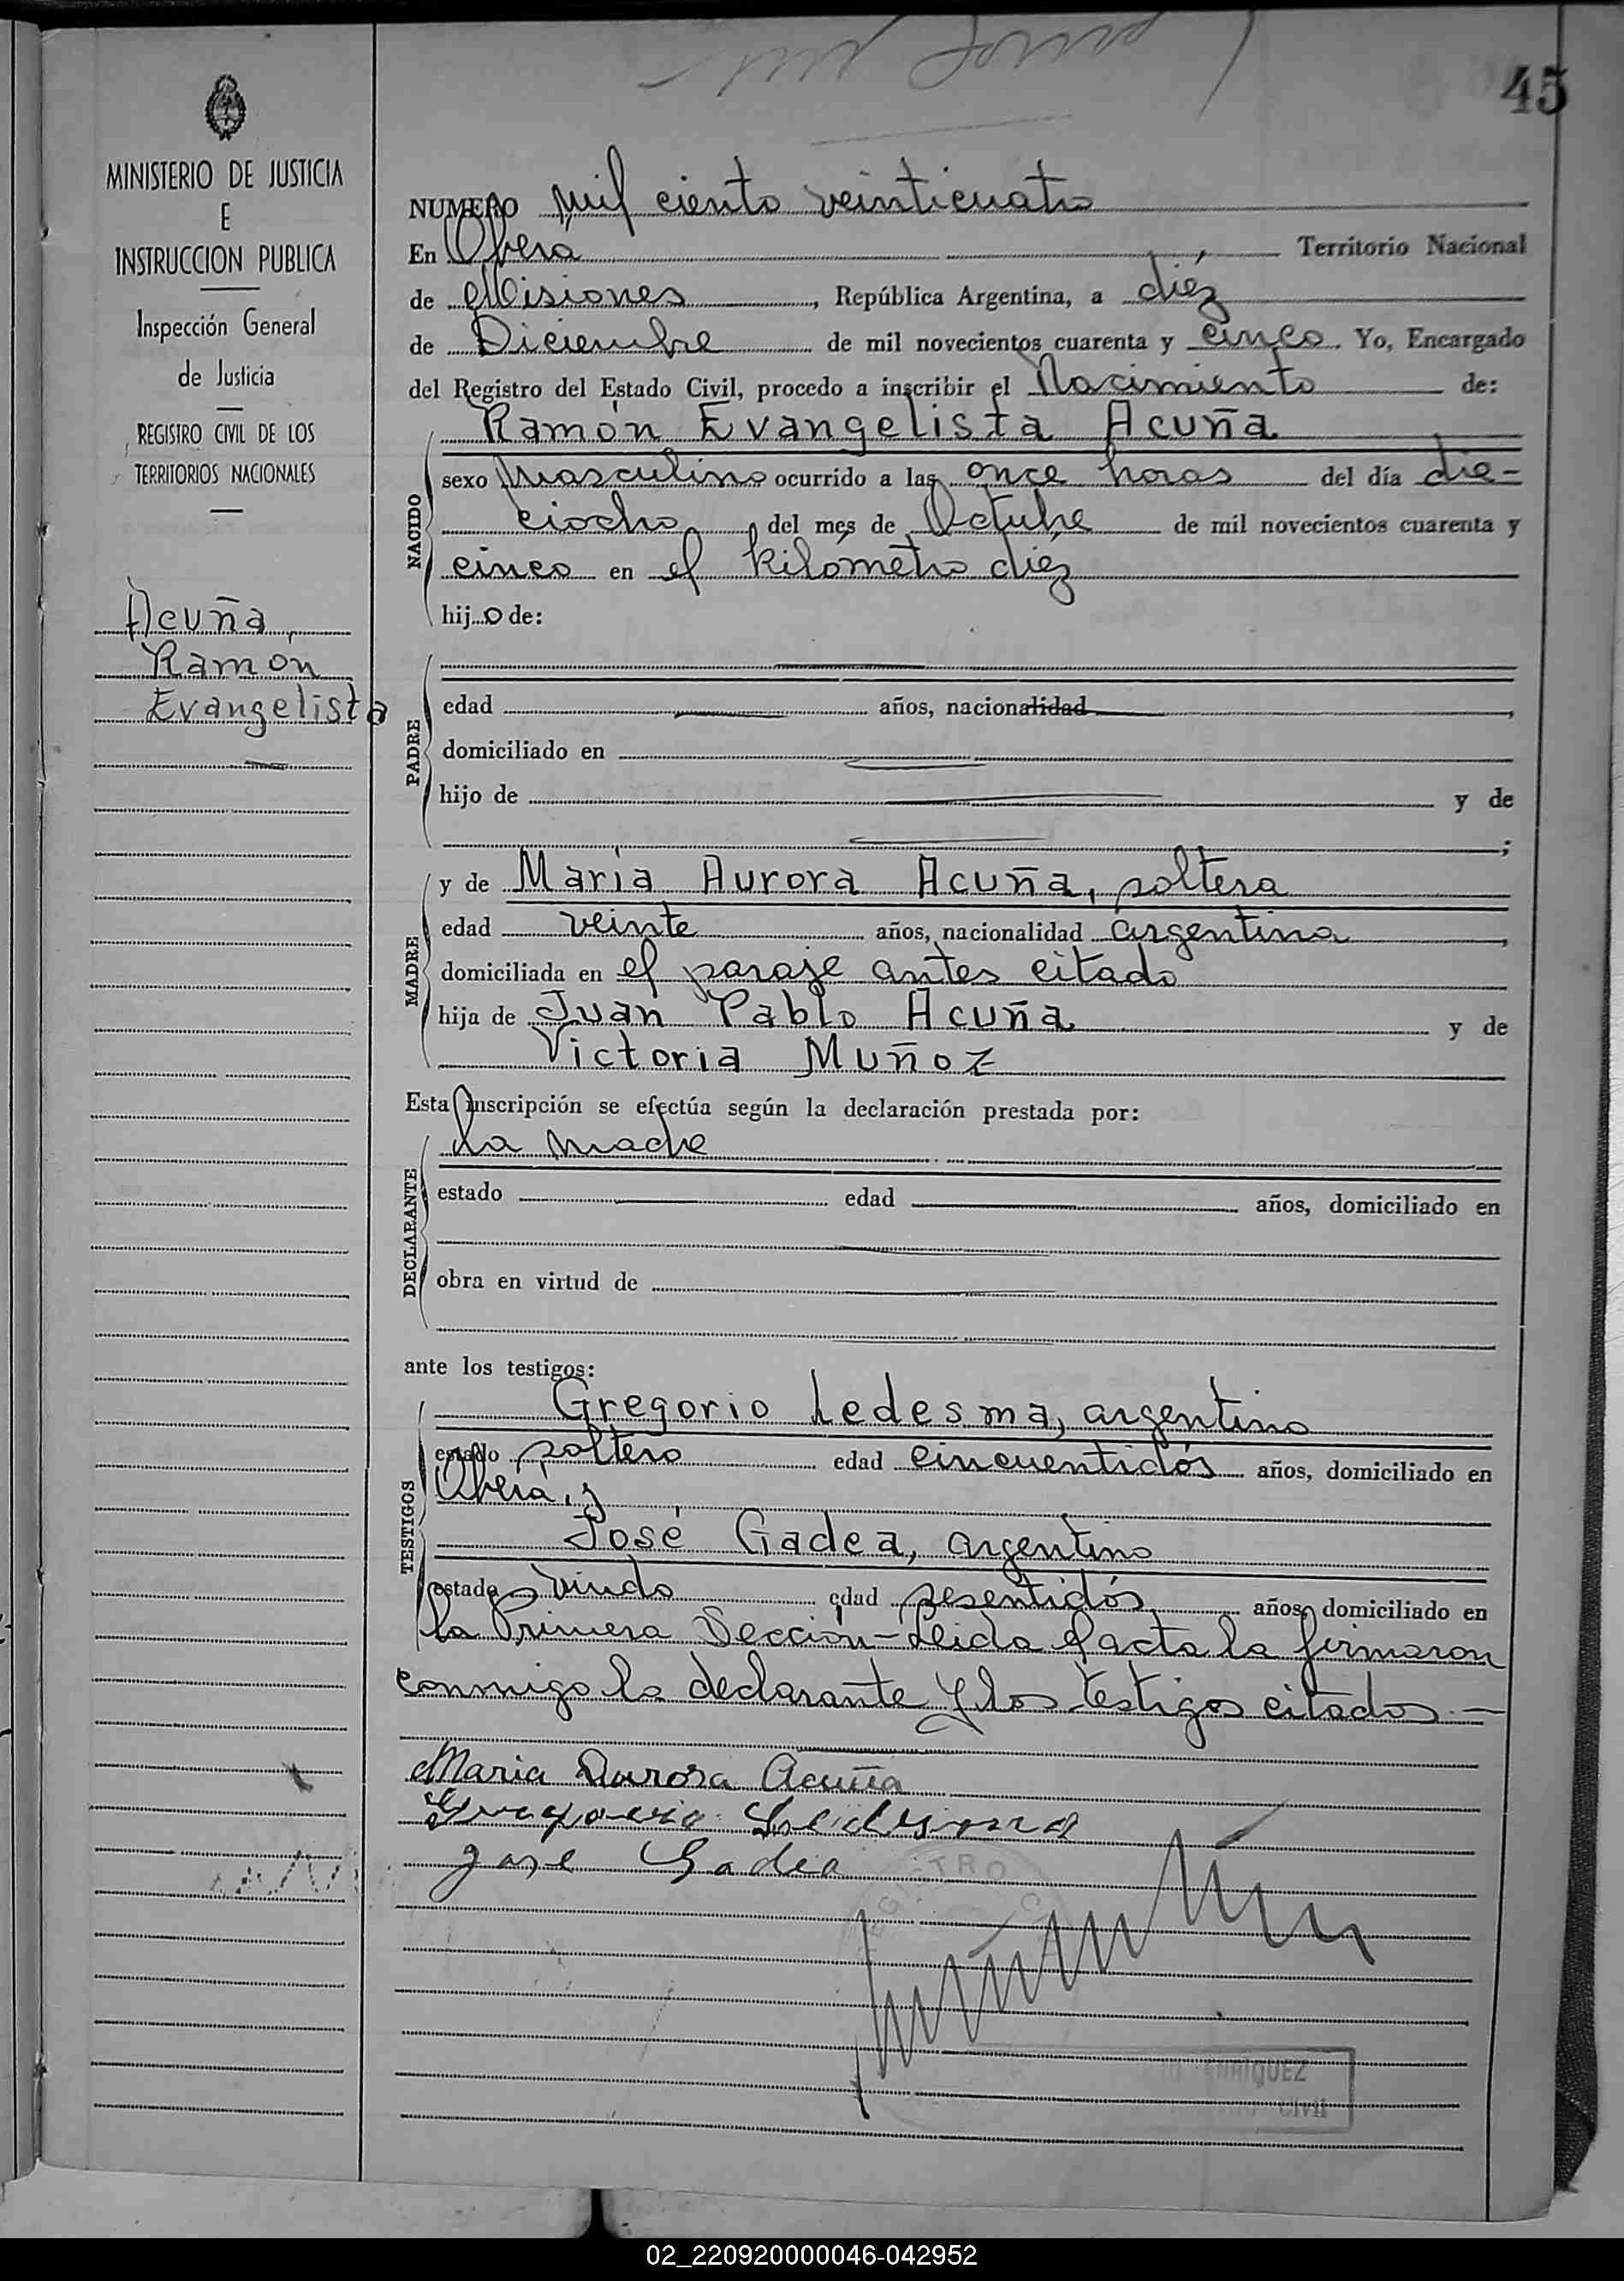 45
MINISTERIO DE JUSTICIA
E
INSTRUCCION PUBLICA
Inspección General
de Justicia
REGISTRO CIVIL DE LOS
TERRITORIOS NACIONALES
Acuña,
Ramón
Evangelista
NUMERO mil ciento veinticuatro
En Oberá, Territorio Nacional
de Misiones, República Argentina, a diéz
de Diciembre de mil novecientos cuarenta y cinco. Yo, Encargado
del Registro del Estado Civil, procedo a inscribir el Nacimiento de:
NACIDO
Ramón Evangelista Acuña
sexo masculino ocurrido a las once horas del día die-
ciocho, del mes de Octubre de mil novecientos cuarenta y
cinco en el kilómetro diéz
hijo de:
PADRE
edad años, nacionalidad ,
domiciliado en
hijo de y de
;
MADRE
y de María Aurora Acuña, soltera
edad veinte años, nacionalidad argentina,
domiciliada en el paraje antes citado
hija de Juan Pablo Acuña y de
Victoria Muñoz
Esta inscripción se efectúa según la declaración prestada por:
DECLARANTE
La madre
estado edad años, domiciliado en
obra en virtud de
ante los testigos:
TESTIGOS
Gregorio Ledesma, argentino
estado soltero edad cincuentidós años, domiciliado en
Oberá, y
José Gadea, argentino
estado viudo edad sesentidós años, domiciliado en
la Primera Sección-Leida el acta la firmaron
conmigo la declarante y los testigos citados.—
Maria Aurora Acuña
Gregorio Ledesma
Jose Gadea
REGISTRO C
ENRIQUEZ
Civil
02_220920000046-042952